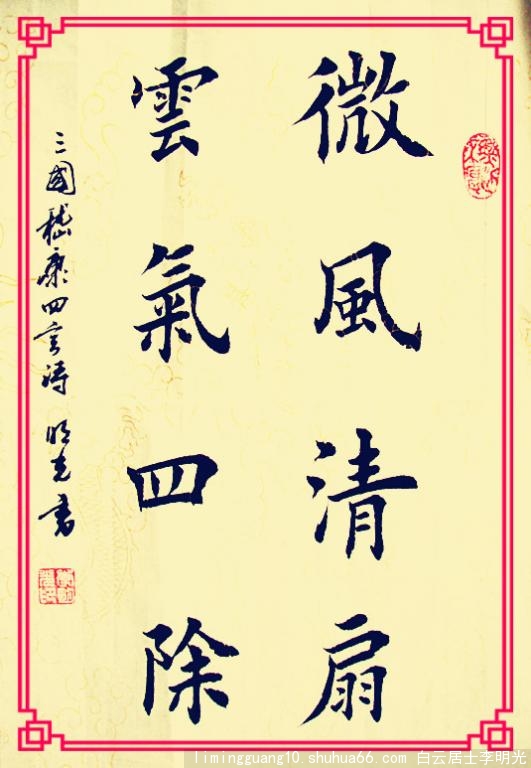 微風清扇
雲氣四除
三國嵇康四言诗 明光書
limingguang10.shuhua66.com 白云居士李明光